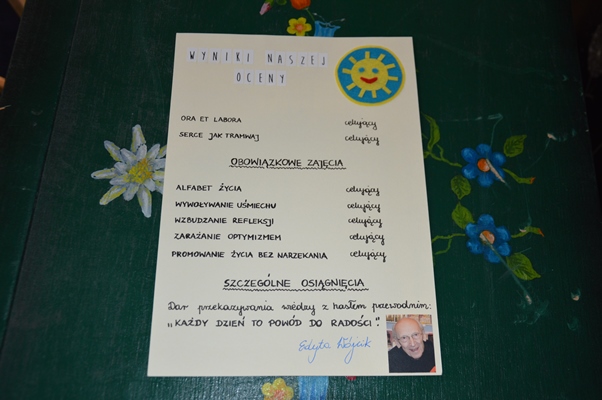 WYNIKI NASZEJ
OCENY
ORA ET LABORA celujący
SERCE JAK TRAMWAJ celujący
OBOWIĄZKOWE ZAJĘCIA
ALFABET ŻYCIA celujący
WYWOŁYWANIE UŚMIECHU celujący
WZBUDZANIE REFLEKSJI celujący
ZARAŻANIE OPTYMIZMEM celujący
PROMOWANIE ŻYCIA BEZ NARZEKANIA celujący
SZCZEGÓLNE OSIĄGNIĘCIA
Dar przekazywania wiedzy z hasłem przewodnim:
„KAŻDY DZIEŃ TO POWÓD DO RADOŚCI".
Edyta